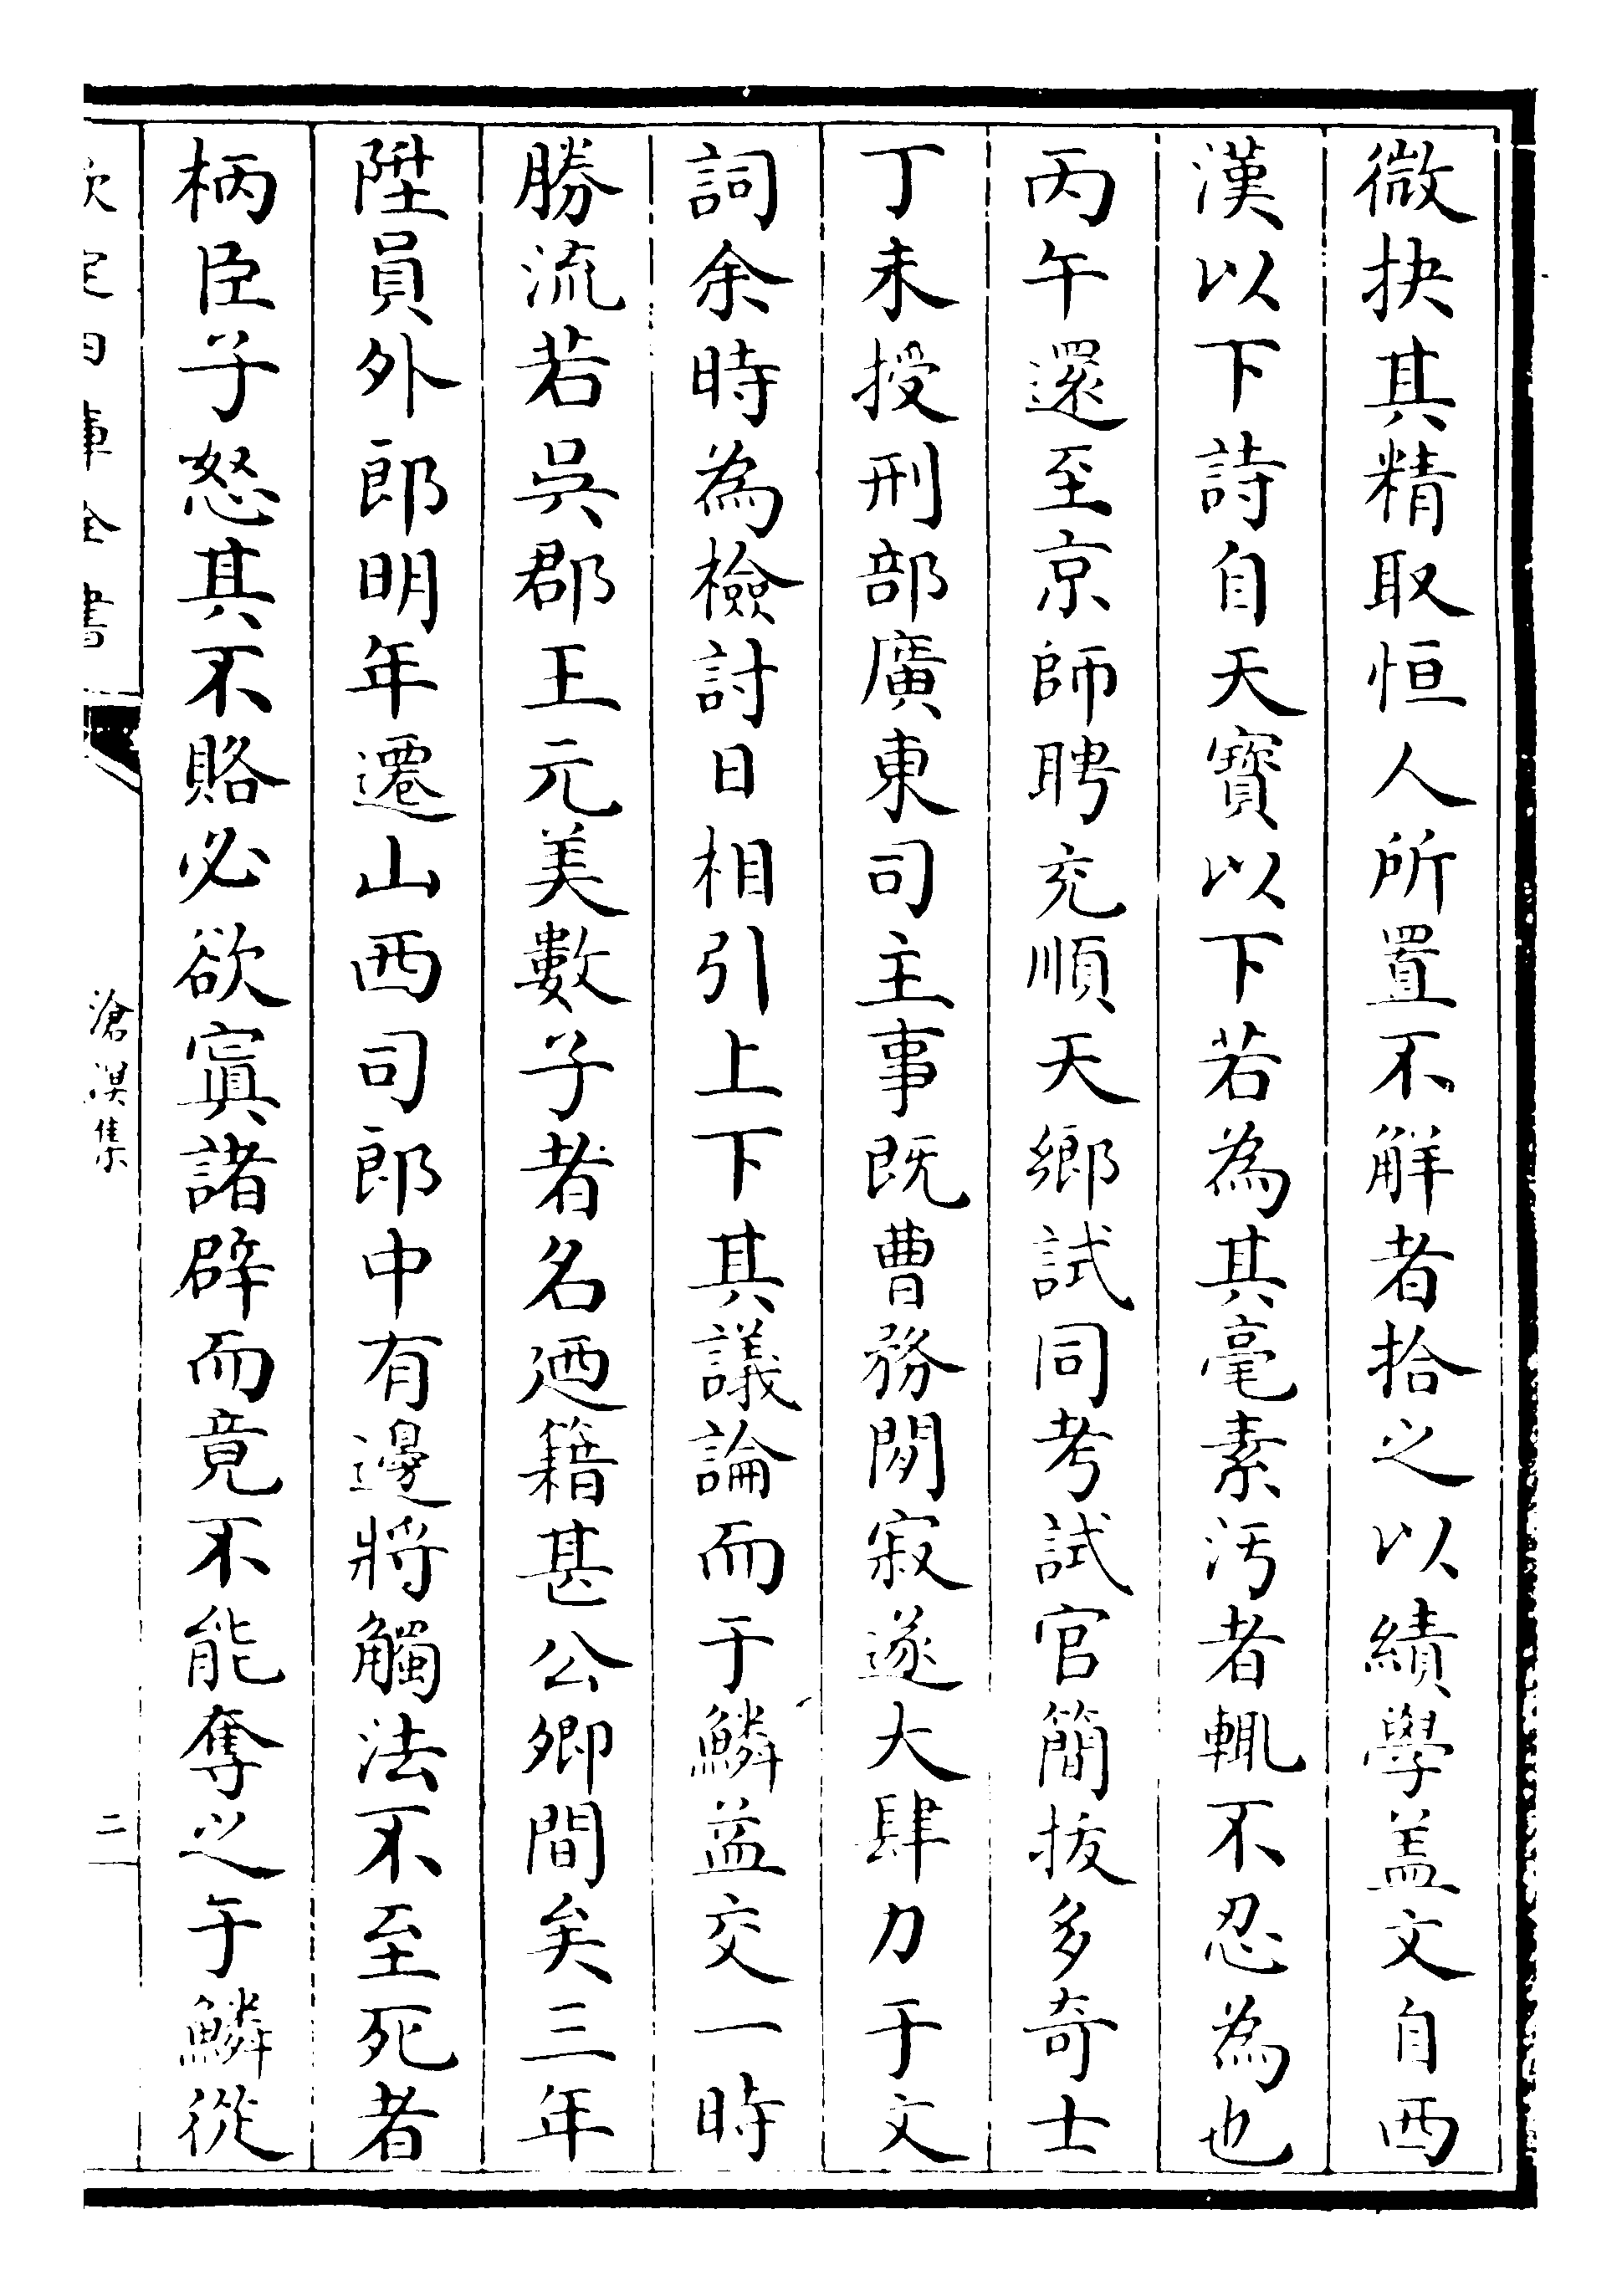 微抉其精取恒人所置不解者拾之以績學盖文自西
漢以下詩自天寳以下若為其毫素汚者輒不忍為也
丙午還至京師聘充順天鄉試同考試官簡拔多奇士
丁未授刑部廣東司主事既曹務閒寂遂大肆力于文
詞余時為檢討日相引上下其議論而于鱗益交一時
勝流若吳郡王元美數子者名廼籍甚公卿間矣三年
陞員外郎明年遷山西司郎中有邊將觸法不至死者
柄臣子怒其不賂必欲寘諸辟而竟不能奪之于鱗從
欽定四庫全書
滄溟集
二